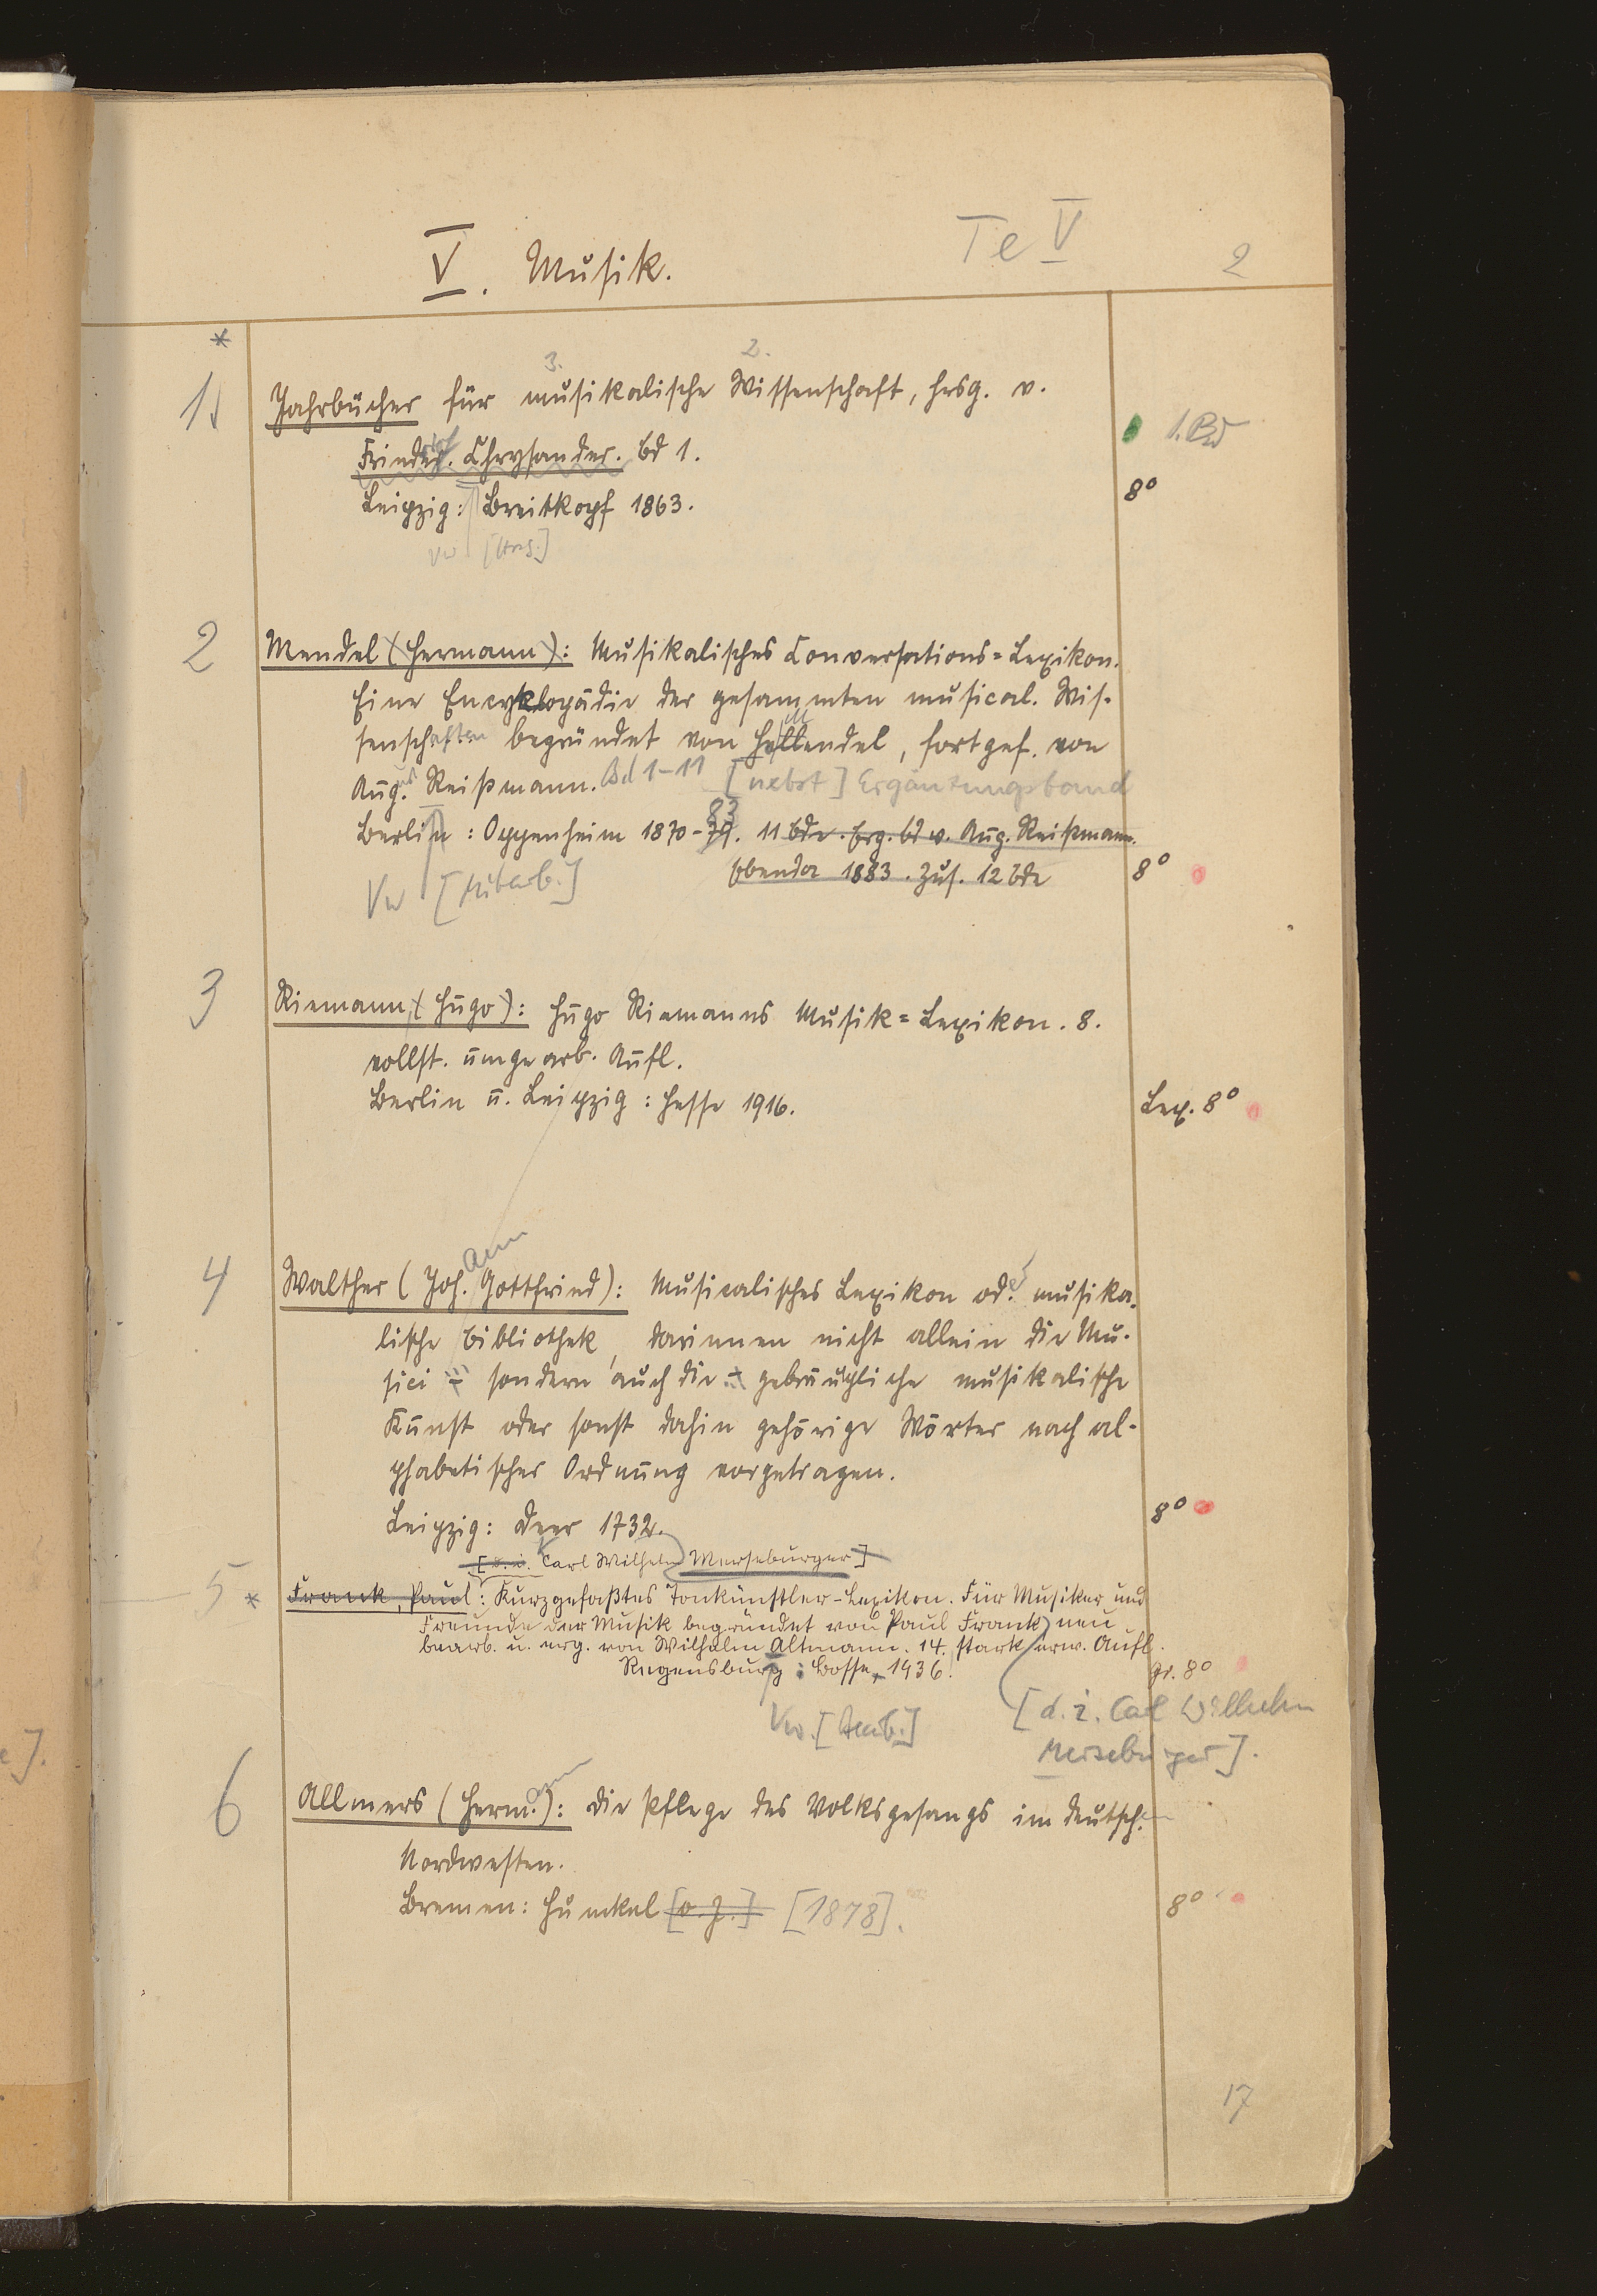 V. Musik.
Te V
2
*
3. 2.
1 Jahrbücher für musikalische Wissenschaft, hrsg. v.
Friedr. Chrysander. Bd 1.
1. Bd
Leipzig: Breitkopf 1863.
8°
Vw [Hrsg.]
2 Mendel (Hermann): Musikalisches Conversations=Lexikon.
Eine Encyklopädie der gesammten musical. Wis-
senschaften begründet von H. Mendel, fortges. von
Aug. Reißmann. Bd 1-11 [nebst] Ergänzungsband
Berlin: Oppenheim 1870-79. 83 11 Bde. Erg. Bd v. Aug. Reißmann.
Ebenda 1883. Zus. 12 Bde
8°
Vw [Mitarb.]
3 Riemann (Hugo): Hugo Riemanns Musik=Lexikon. 8.
vollst. umgearb. Aufl.
Berlin u. Leipzig: Hesse 1916.
Lex. 8°
4 Walther (Joh.ann Gottfried): Musicalisches Lexikon oder musika-
lische Bibliothek, darinnen nicht allein die Mu-
sici - sondern auch die - gebräuchliche musikalische
Kunst oder sonst dahin gehörige Wörter nach al-
phabetischer Ordnung vorgetragen.
Leipzig: Deer 1732.
8°
[d. i. Carl Wilhelm Merseburger]
5 * Frank, Paul: Kurzgefaßtes Tonkünstler-Lexikon. Für Musiker und
Freunde der Musik begründet von Paul Frank, neu
bearb. u. erg. von Wilhelm Altmann. 14. stark erw. Aufl.
Regensburg: Bosse, 1936.
gr. 8°
Vw. [Bearb.]
[d. i. Carl Wilhelm
Merseburger].
6 Allmers (Herm.ann): Die Pflege des Volksgesangs im deutschen
Nordwesten.
Bremen: Hunckel [o. J.] [1878].
8°
17